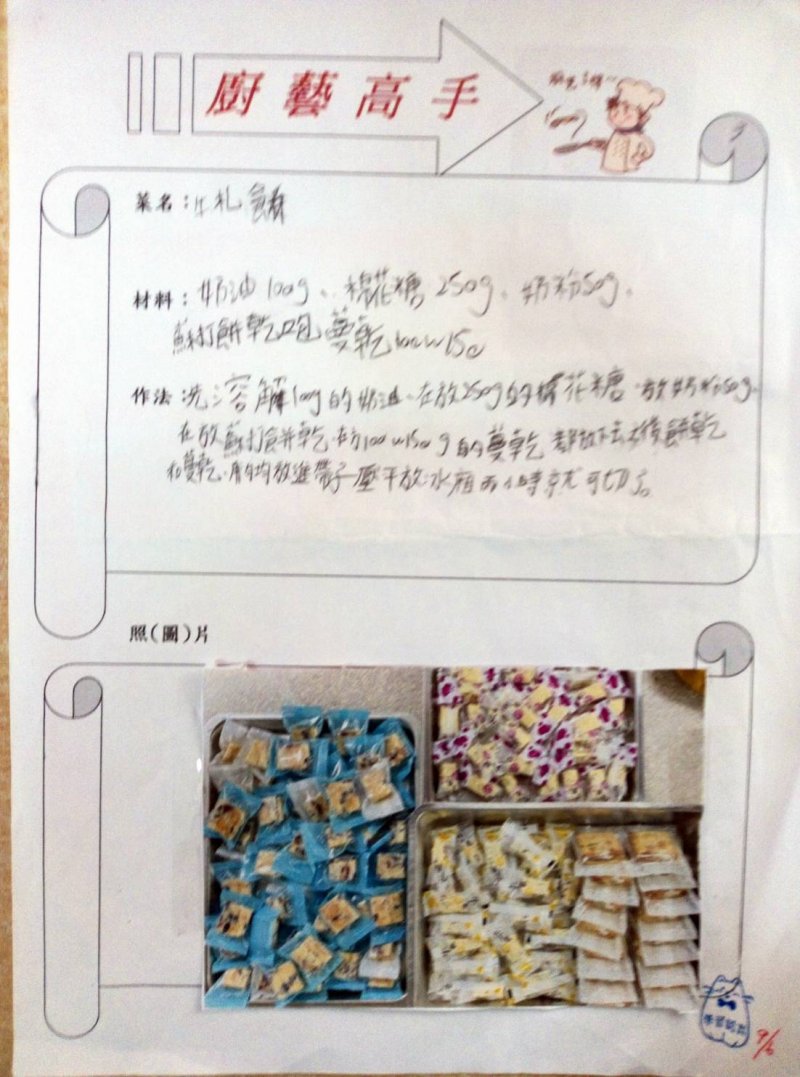 廚藝高手
菜名：牛札餅
材料：奶油100g、棉花糖250g、奶粉50g、
蘇打餅乾2包 蔓乾100~150
作法：洗溶解100g的奶油、在放250g的棉花糖、放奶粉50g、
在放蘇打餅乾、放100~150g的蔓乾 都放下去後餅乾
和蔓乾、均放進帶子壓平放冰箱兩小時就可切了。
照(圖)片
9/6